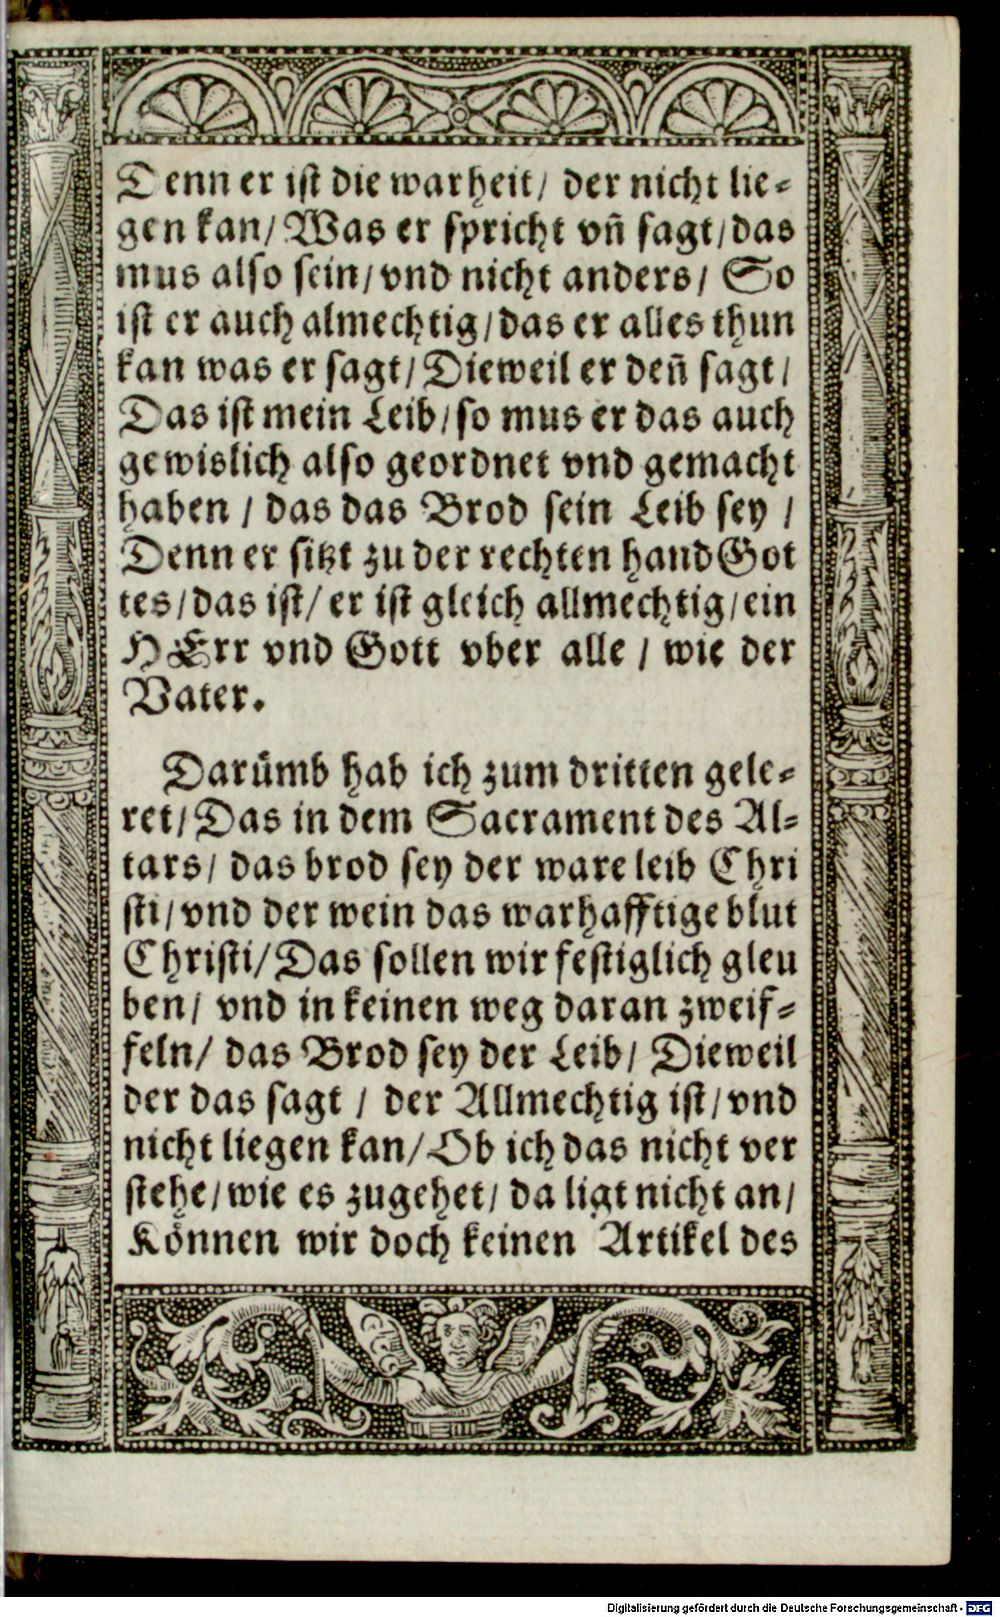 Denn er ist die warheit/ der nicht lie-
gen kan/ Was er spricht vñ sagt/ das
mus also sein/ vnd nicht anders/ So
ist er auch almechtig/ das er alles thun
kan was er sagt/ Dieweil er deñ sagt/
Das ist mein Leib/ so mus er das auch
gewislich also geordnet vnd gemacht
haben/ das das Brod sein Leib sey/
Denn er sitzt zu der rechten hand Got
tes/ das ist/ er ist gleich allmechtig/ ein
HErr vnd Gott vber alle/ wie der
Vater.
Darümb hab ich zum dritten gele-
ret/ Das in dem Sacrament des Al-
tars/ das brod sey der ware leib Chri
sti/ vnd der wein das warhafftige blut
Christi/ Das sollen wir festiglich gleu
ben/ vnd in keinen weg daran zweif-
feln/ das Brod sey der Leib/ Dieweil
der das sagt/ der Allmechtig ist/ vnd
nicht liegen kan/ Ob ich das nicht ver
stehe/ wie es zugehet/ da ligt nicht an/
Können wir doch keinen Artikel des
Digitalisierung gefördert durch die Deutsche Forschungsgemeinschaft - DFG